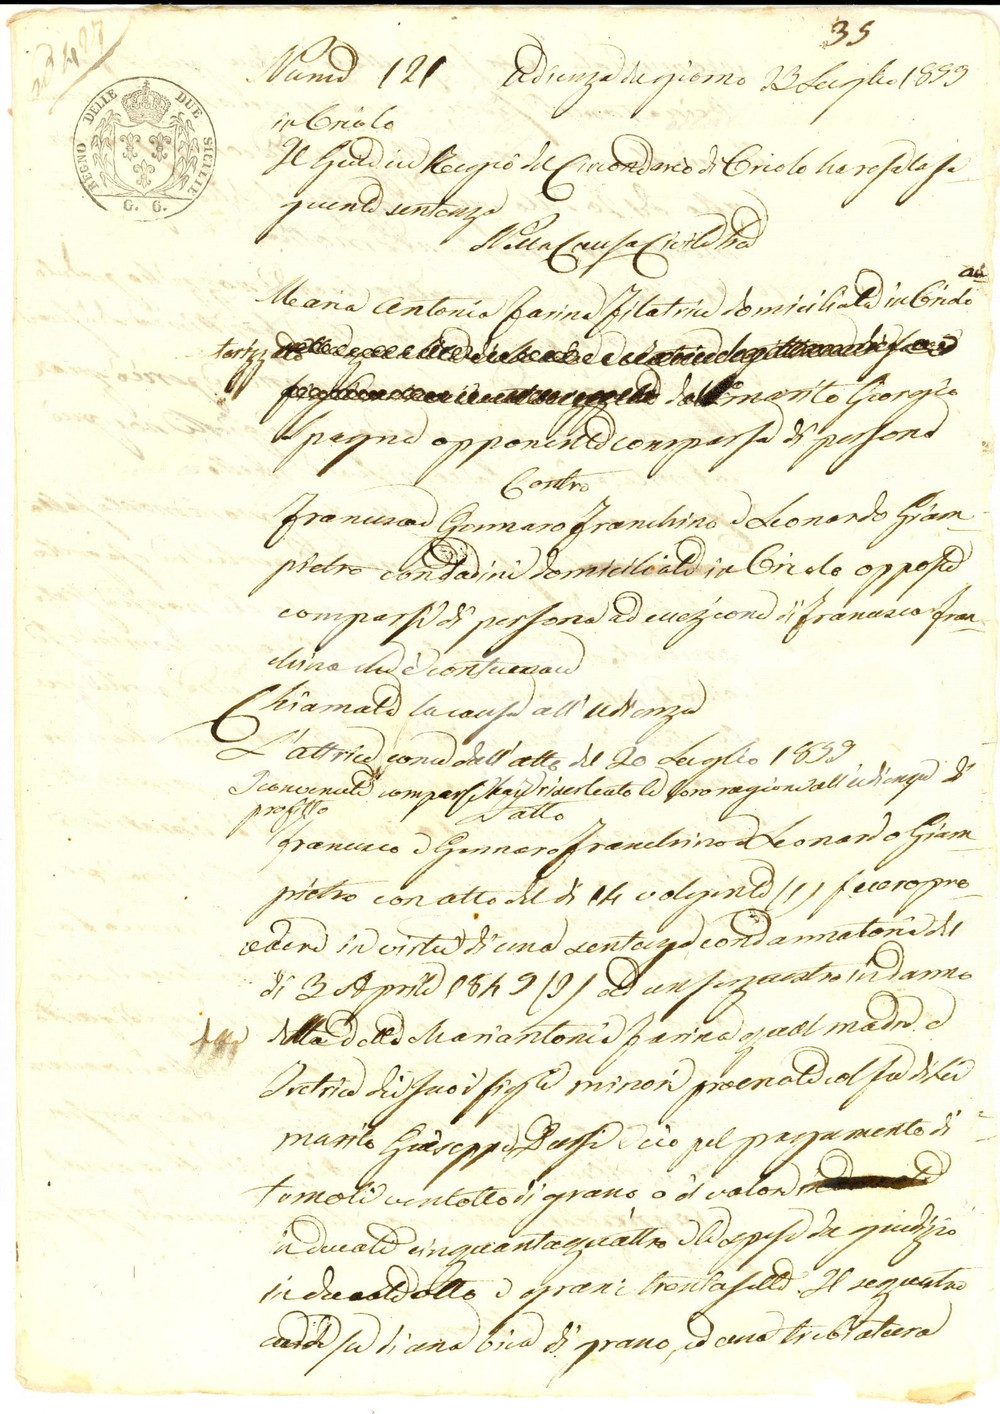 35
REGNO DELLE DUE SICILIE
G. G.
Num° 121 Udienza del giorno 23 Luglio 1859
in Oriolo
Il Giudice Regio del Circondario di Oriolo ha reso la se-
guente sentenza
Nella Causa Civile tra
Maria Antonia Farina filatrice domiciliata in Oriolo au
torizzata dal marito Giorgio
Spagna opponente comparsa di persona
Contro
Francesco e Gennaro Franchino e Leonardo Giam-
pietro contadini domiciliati in Oriolo opposti
comparsi di persona ad eccezione di Francesco Fran-
chino che è contumace
Chiamata la causa all'udienza
L'attrice come dall'atto del 20 Luglio 1859
I convenuti comparsi le loro ragioni all'udienza di
Fatto
Francesco e Gennaro Franchino e Leonardo Giam-
pietro con atto del dì 14 volgente (1) fecero pro-
cedere in virtù di una sentenza condannatoria del
dì 3 Aprile 1849 (2) ad un sequestro in danno
della detta Mariantonia Farina qual madre e
tutrice dei suoi figli minori procreati col fu di lei
marito Giuseppe e ciò pel pagamento di
tomoli ventotto di grano o di valore
in ducati cinquantaquattro e le spese del giudizio
in ducati otto e grani trentasette. Il sequestro
cadde su di una bica di grano, ed una